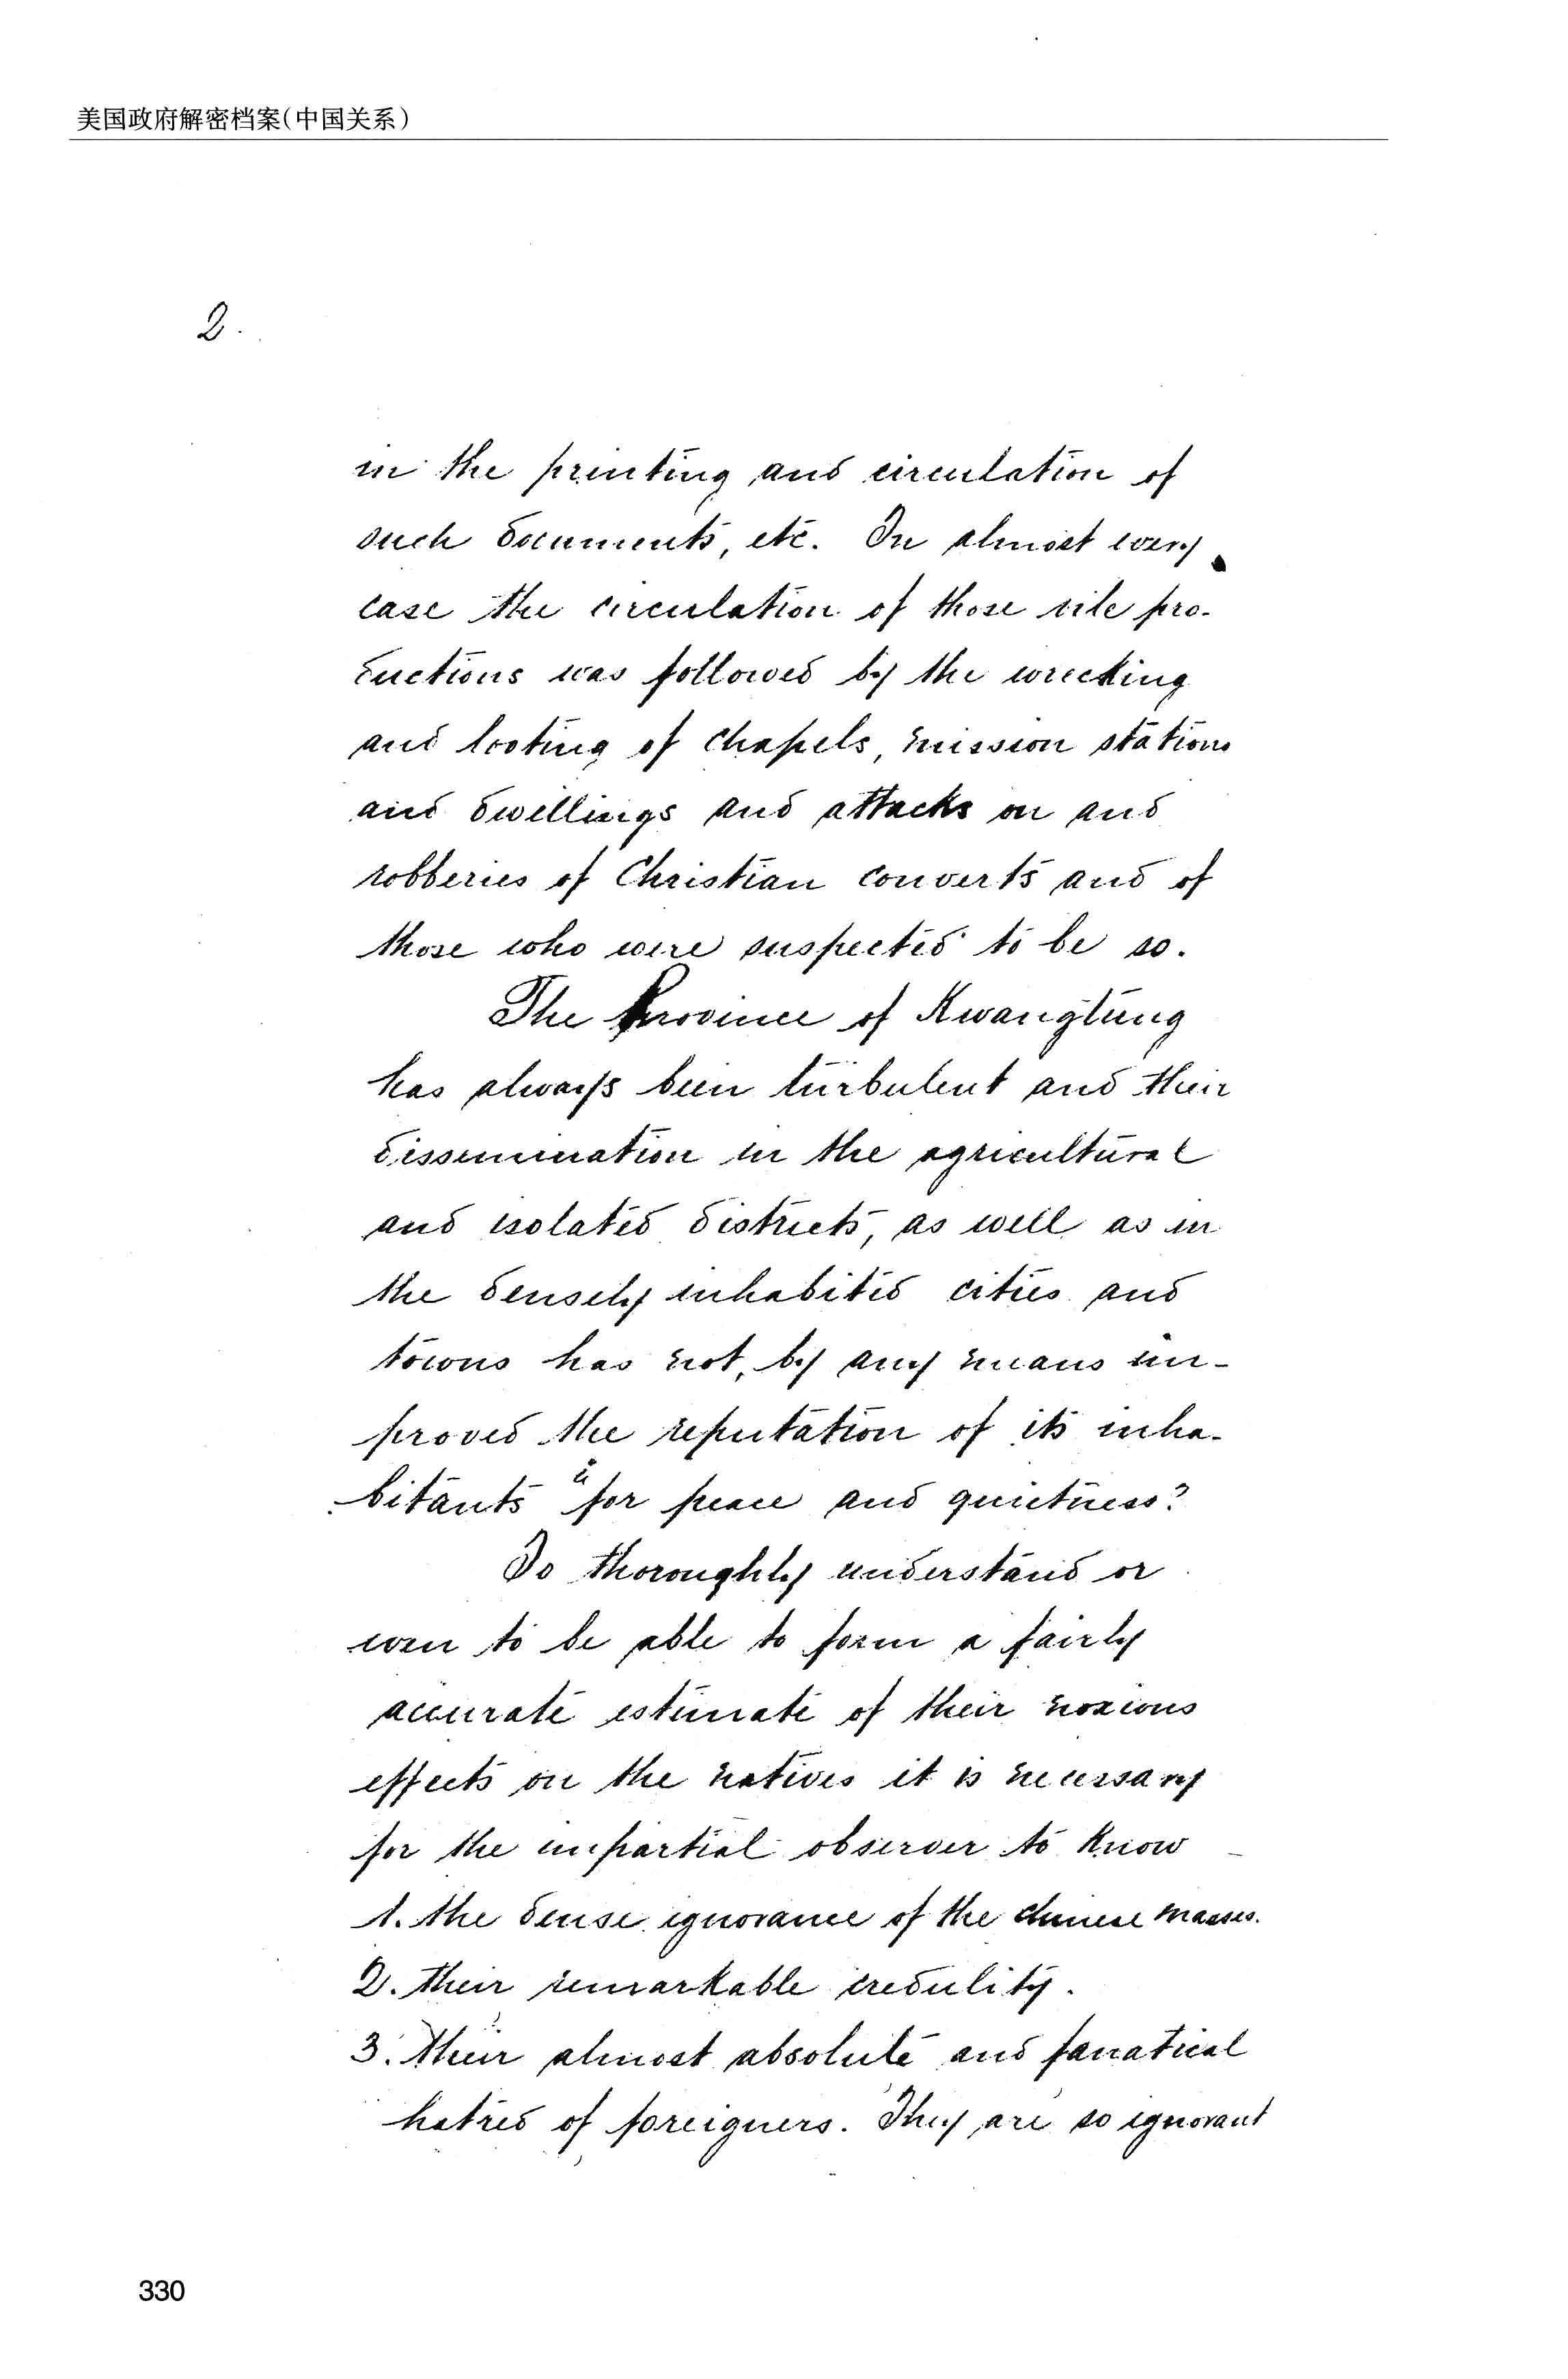 美国政府解密档案(中国关系)
2.
in the printing and circulation of
such documents, etc. In almost every
case the circulation of those vile pro-
ductions was followed by the wrecking
and looting of chapels, mission stations
and dwellings and attacks on and
robberies of Christian converts and of
those who were suspected to be so.
The Province of Kwangtung
has always been turbulent and their
dissemination in the agricultural
and isolated districts, as well as in
the densely inhabited cities and
towns has not, by any means im-
proved the reputation of its inha-
bitants "for peace and quietness".
To thoroughly understand or
even to be able to form a fairly
accurate estimate of their noxious
effects on the natives it is necessary
for the impartial observer to know
1. the dense ignorance of the Chinese masses.
2. their remarkable credulity.
3. their almost absolute and fanatical
hatred of foreigners. They are so ignorant
330